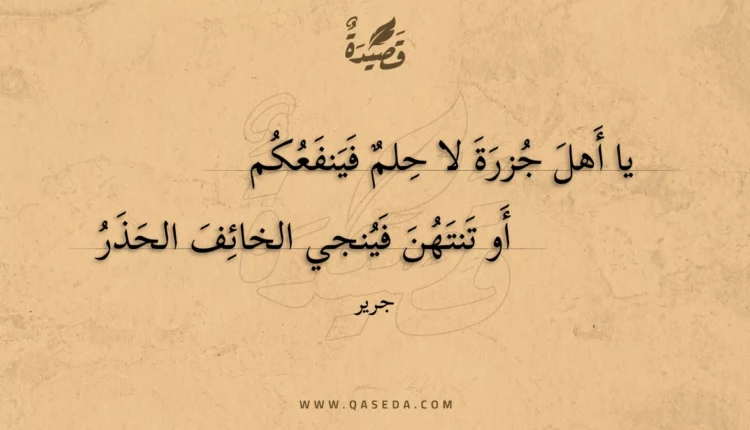 قَصِيدَةٌ
يا أَهلَ جُزرَةَ لا حِلمٌ فَيَنفَعُكُم
أَو تَنتَهُنَ فَيُنجي الخائِفَ الحَذَرُ
جرير
WWW.QASEDA.COM